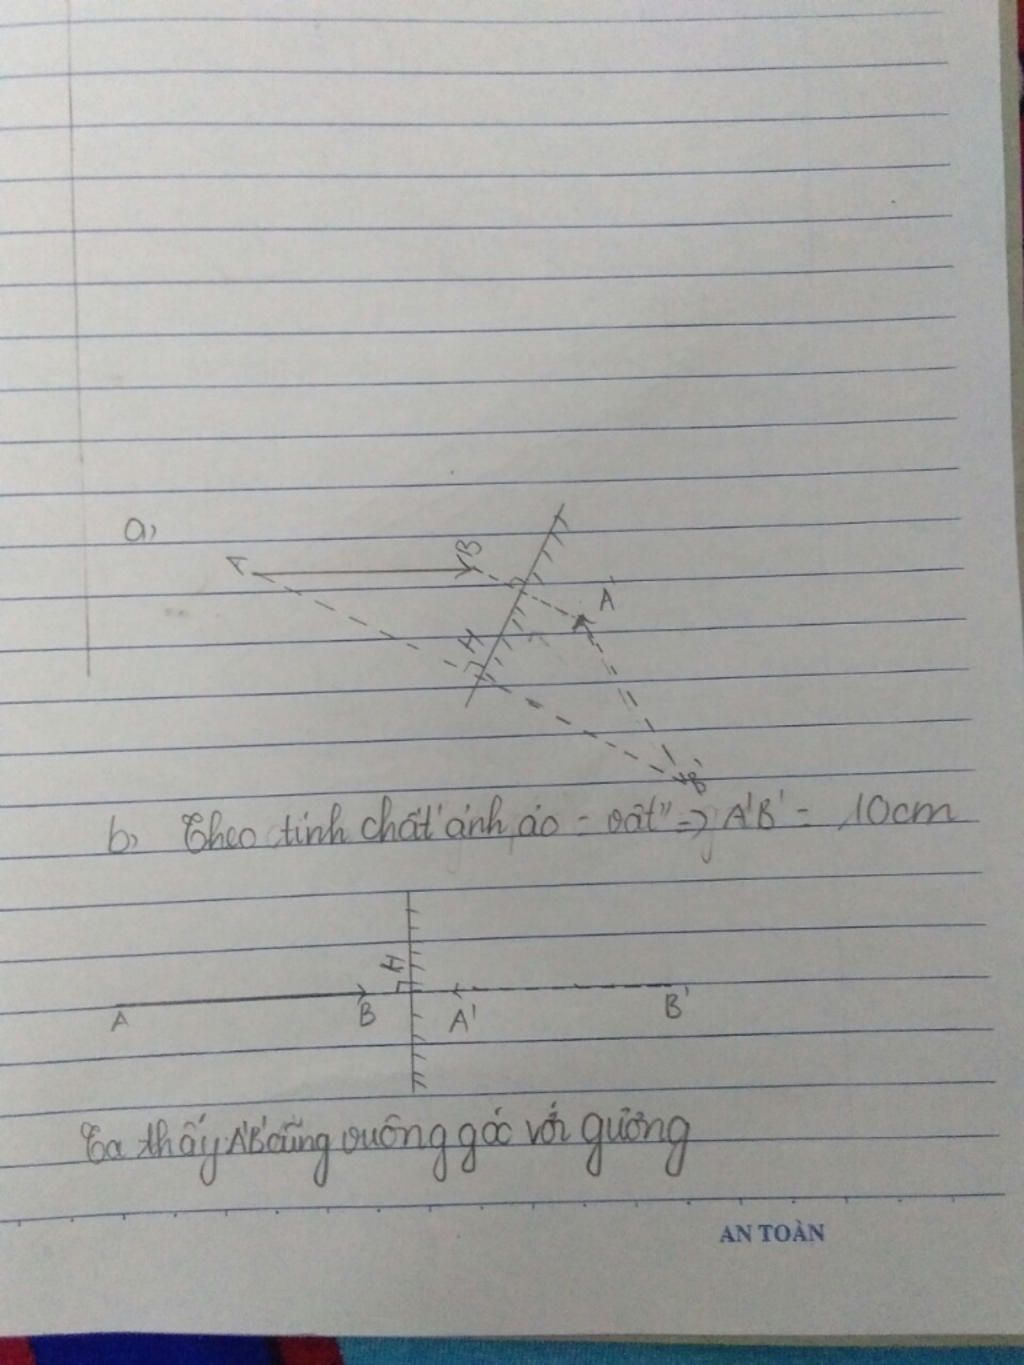 a,
A
B
H
A'
B'
b, Theo tính chất "ảnh ảo = vật" => A'B' = 10cm
H
A B A' B'
Ta thấy A'B' cũng vuông góc với gương
AN TOÀN